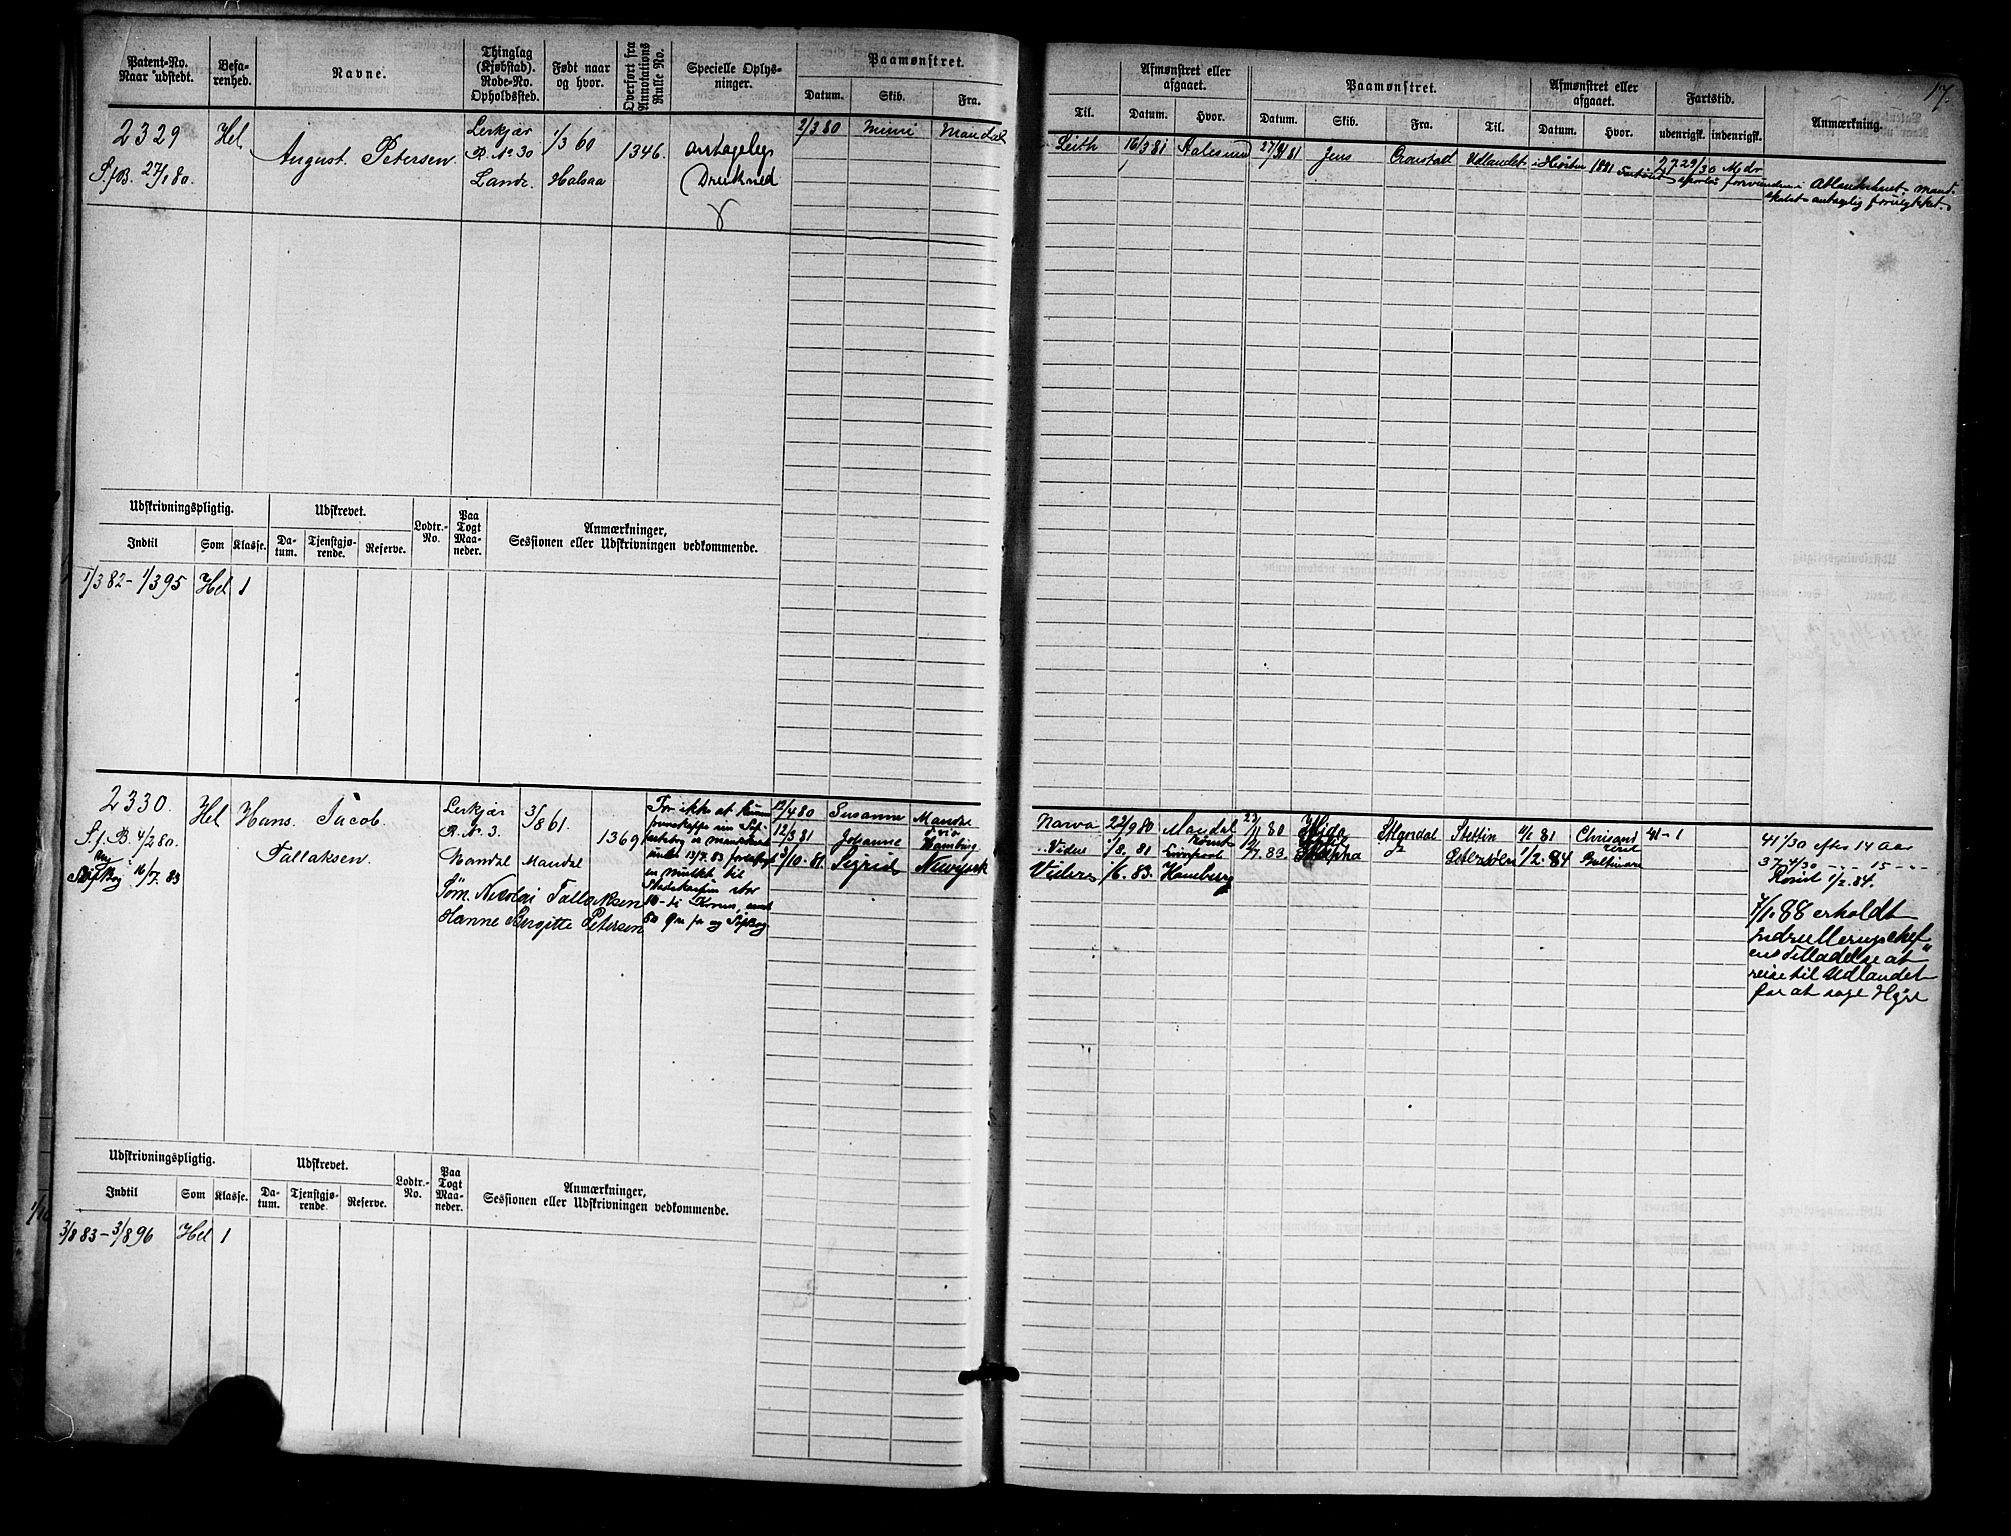 17.
Patent-No. Naar udstedt.
Befarenhed.
Navne.
Thinglag (Kjøbstad). Rode-No. Opholdssted.
Født naar og hvor.
Overført fra Annotations Rulle No.
Specielle Oplysninger.
Paamønstret.
Datum. Skib. Fra.
Til.
Afmønstret eller afgaaet.
Datum. Hvor.
Paamønstret.
Datum. Skib. Fra. Til.
Afmønstret eller afgaaet.
Datum. Hvor.
Fartstid.
udenrigsk. indenrigsk.
Anmærkning.
2329
S.f.B. 27/1 80.
Hel
August Petersen
Lerkjær
R. No 30
Landr.
1/3 60
Halsaa
1346.
antagelig
Drukned
2/3 80 Mimi Mandal
Leith 16/3 81 Aalesund 27/3 81 Jens Cronstad Udlandet i Høsten 1881
27 29/30 Mdr
sporløs forsvunden i Atlanterhavet mand-
skabet antagelig forulykket.
Udskrivningspligtig.
Indtil Som Klasse.
Udskrevet.
Datum. Tjenstgjørende. Reserve.
Lodtr.-No.
Paa Togt Maaneder.
Anmærkninger,
Sessionen eller Udskrivningen vedkommende.
1/3 82 - 1/3 95 Hel 1
2330.
S.f.B. 4/2 80.
Ny
16/7. 83
Hel
Hans Jacob
Tallaksen.
Lerkjær
R. No 3.
Mandal
3/8 61.
Mandal
1369
Søn. Nicolai Tallaksen
Hanne Birgitte Petersen
For ikke at kunne
en mulkt til
12/4 80 Susanne Mandal
12/3 81 Johanne Hamburg
/10. 81 Sigrid Newyork
Narva 22/9 80 Mandal
Vidre /8. 81 Liverpool
Videre /6. 83. Hamburg
23/11 80 Hida Mandal Stettin 11/1 81 Chrisand 41 - 1
/7. 83. Alpha Østersøen 1/2. 84 Baltimore
41 1/30 efter 14 Aar
37 4/30 - - 15 - -
Rømt 1/2. 84.
7/1. 88 erholdt
Indrulleringschef-
ens Tilladelse at
reise til Udlandet
for at søge Hyre
Udskrivningspligtig.
Indtil Som Klasse.
Udskrevet.
Datum. Tjenstgjørende. Reserve.
Lodtr.-No.
Paa Togt Maaneder.
Anmærkninger,
Sessionen eller Udskrivningen vedkommende.
3/8 83 - 3/8 96 Hel 1